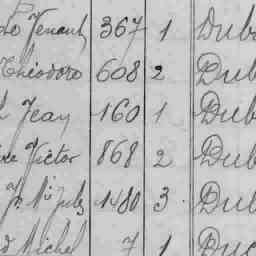 Fernand 367 1 Dub
Théodore 608 2 Dub
Jean 160 1 Dub
Victor 868 2 Dub
Jules 1480 3. Dub
Michel 7 1 Duc